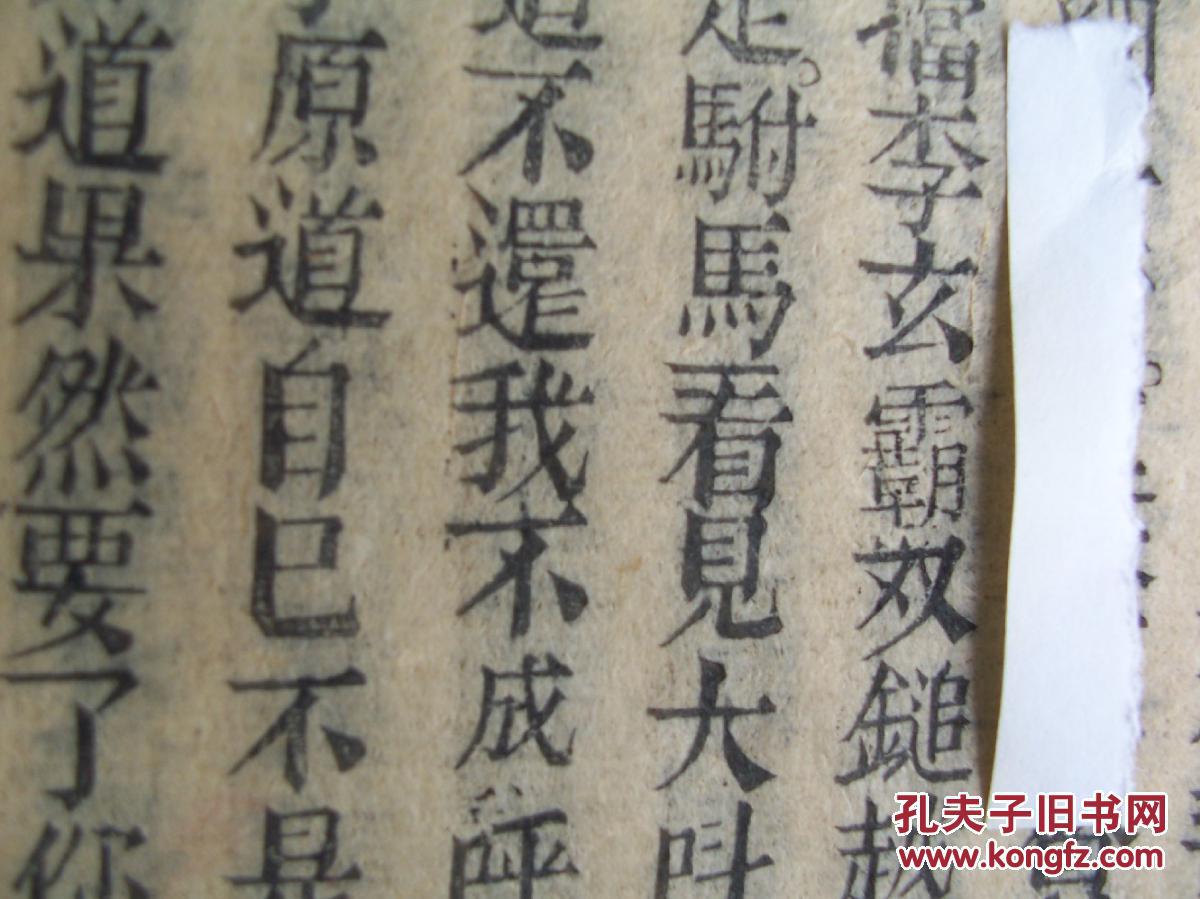 擋李玄霸双鎚越
走。駙馬看見大呌
道不還我不成呼
原道自巳不是
道果然要了你
孔夫子旧书网
www.kongfz.com